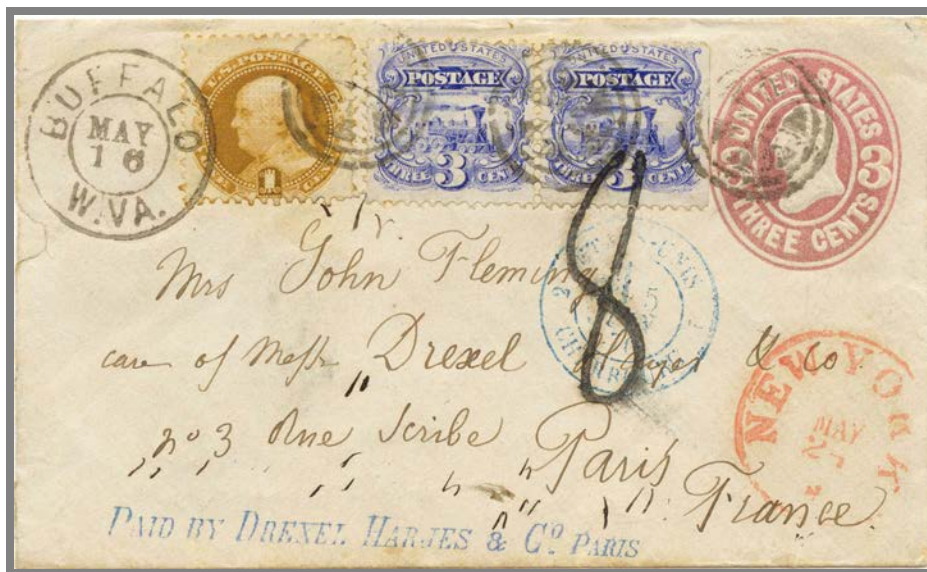 BUFFALO
MAY
16
W.VA.
U.S. POSTAGE
1
UNITED STATES
POSTAGE
THREE 3 CENTS
UNITED STATES
POSTAGE
THREE 3 CENTS
UNITED STATES
3 3
THREE CENTS
8
Mrs John Fleming
care of Messrs Drexel & co
No 3 Rue Scribe Paris
France.
5
CHERBOURG
NEW YORK
MAY
PAID BY DREXEL HARJES & Co PARIS